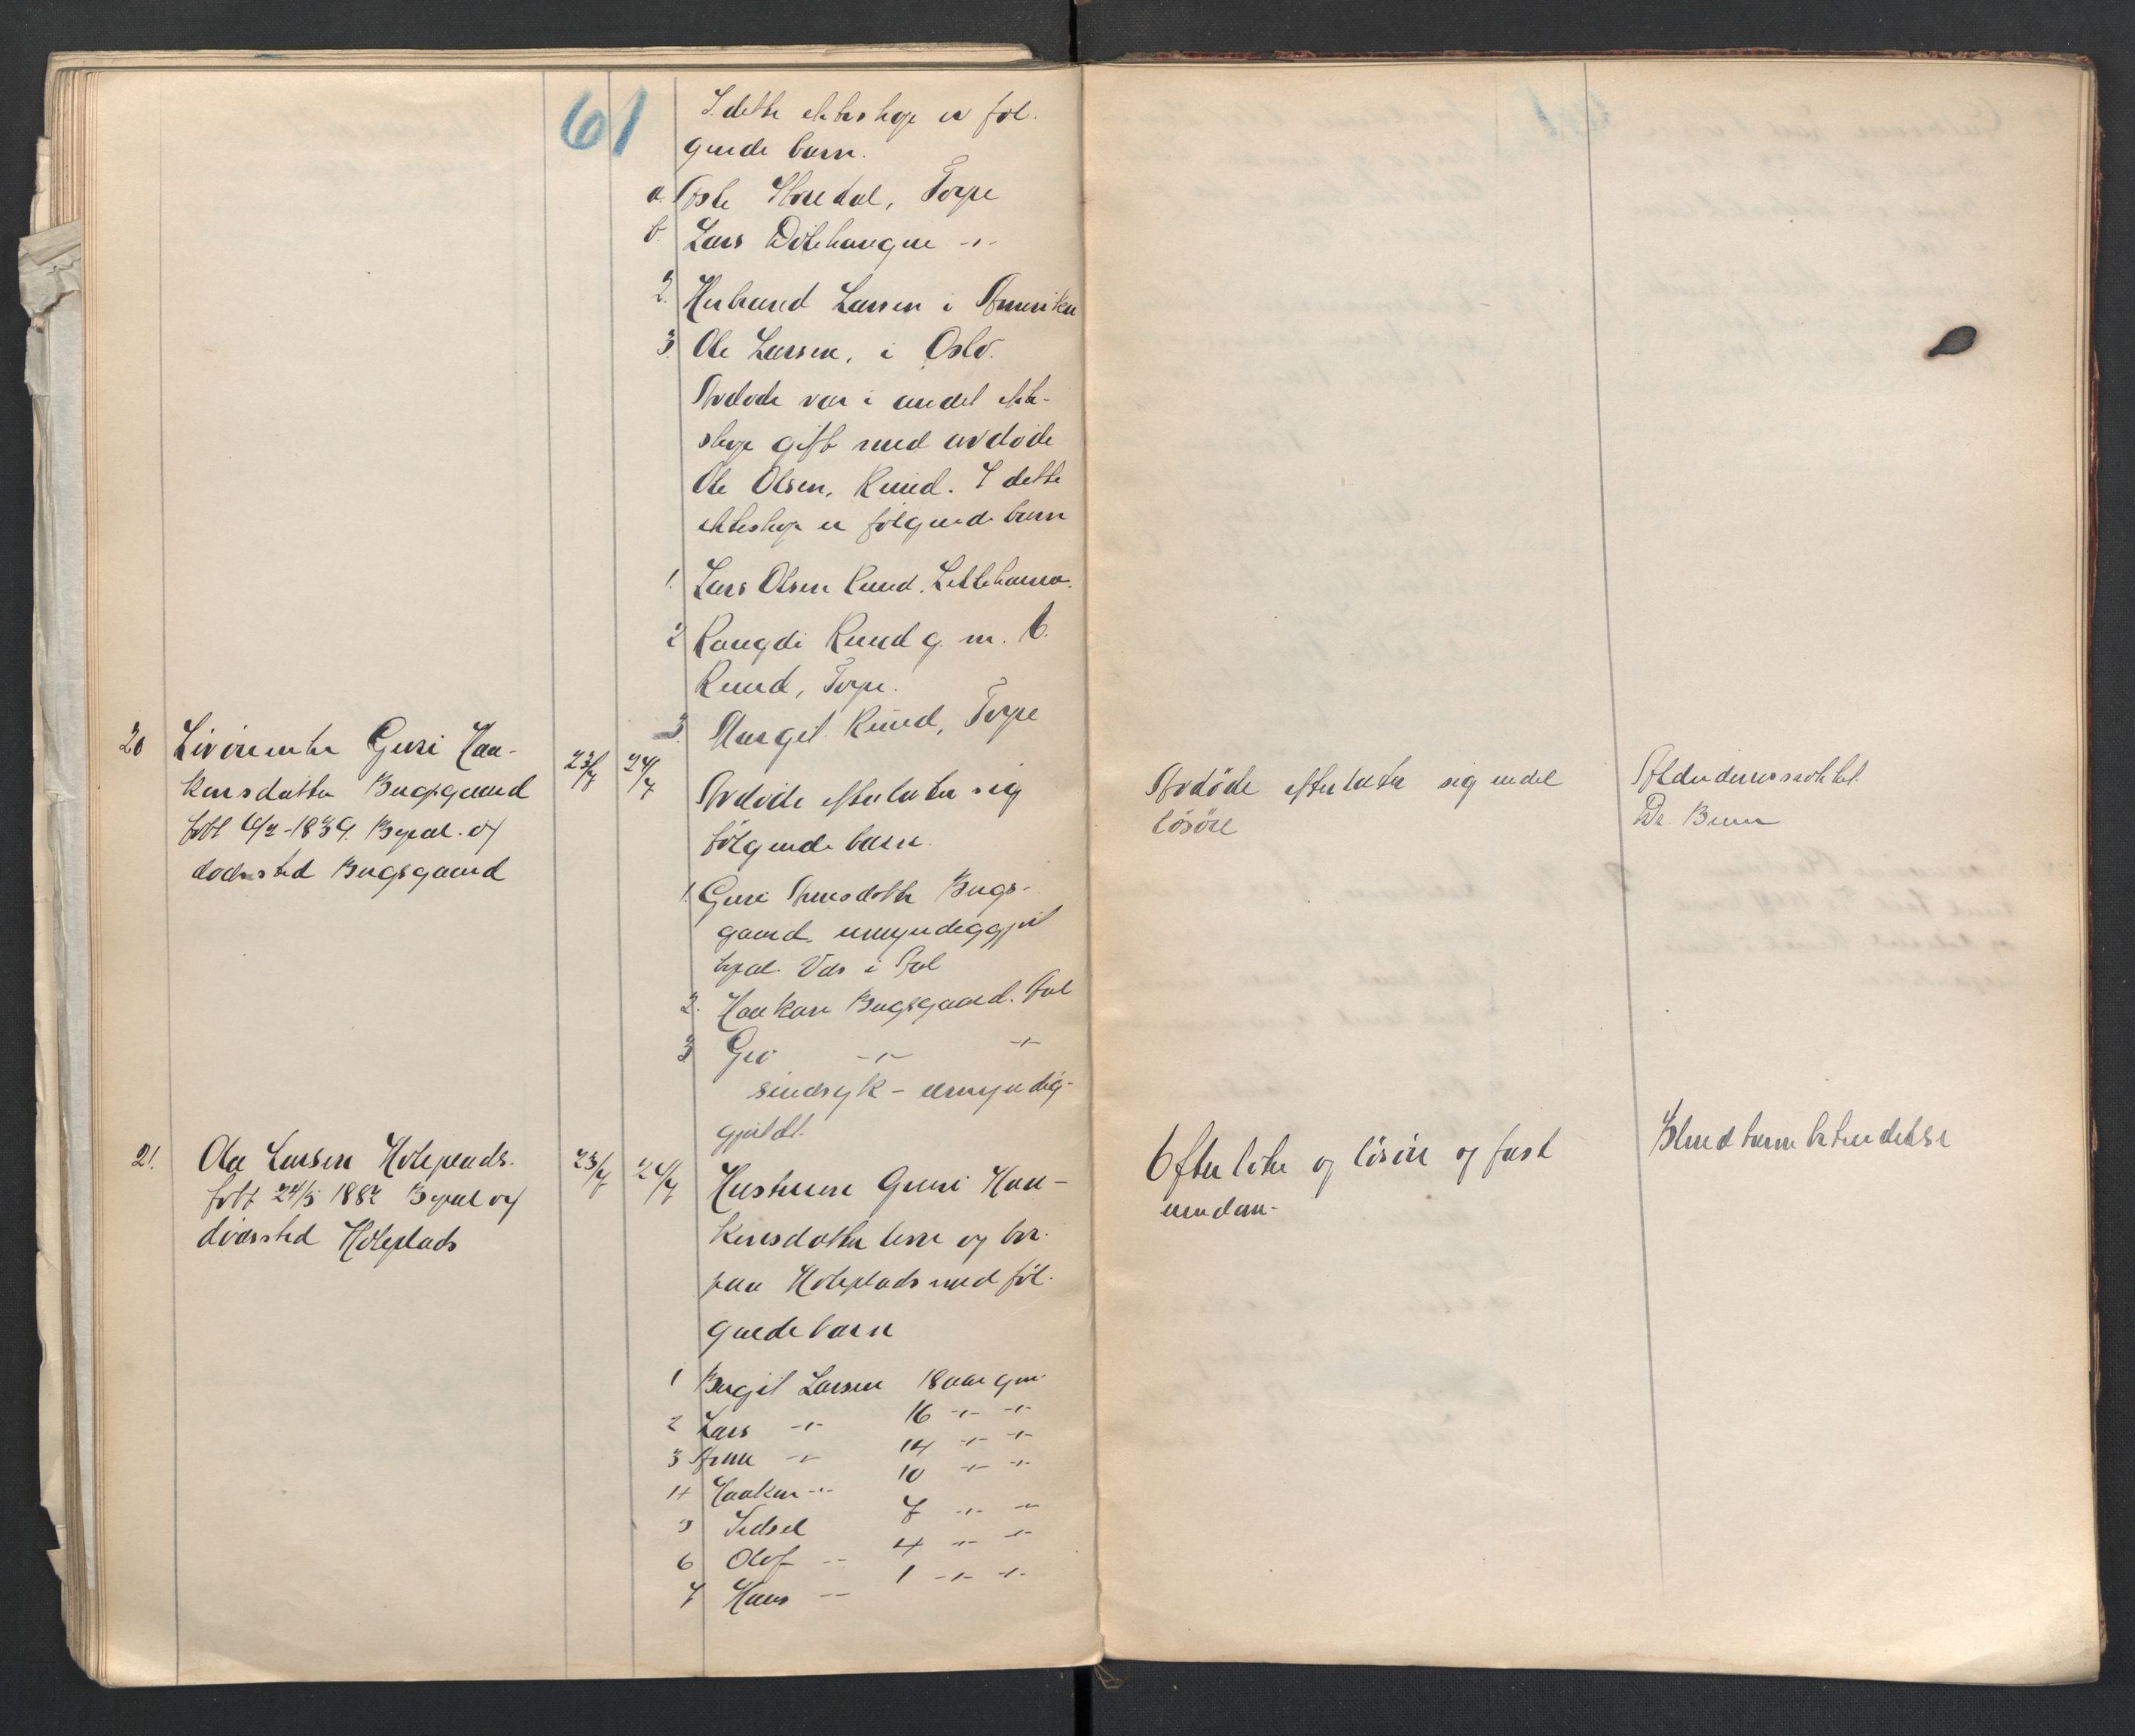 61
I dette ekteskap er føl-
gende barn.
a. Øste Storedal, Torpe
b. Lars Dölehaugen -"-
2. Herbrand Larsen i Amerika
3. Ole Larsen, i Oslo.
Avdøde var i andet ekte-
skap gift med avdøde
Ole Olsen, Ruud. I dette
ekteskap er følgende barn
1. Lars Olsen Ruud.
2 Rangdi Ruud g. m. E.
Ruud, Torpe.
3. Margit Ruud, Torpe
20 Livørenke Guri Haa-
kensdatter Bugsgaard
født 6/2-1839. Bopæl og
dødssted Bugsgaard
23/7 24/7
Avdøde efterlater sig
følgende barn.
1. Guri Arnesdatter Bugs-
gaard. umyndiggjort
bopæl. Vats i Aal
2. Haakon Bugsgaard. Aal
3 Gro -"- -"-
sindsyk - umyndig-
gjort.
Avdöde efterlater sig endel
lösöre
Alderdomssvakhet
Dr. Bruun
21. Ola Larsen Holeplads.
født 24/5 1882 Bopæl og
dødssted Holeplads
23/7 24/7
Hustruen Guri Haa-
kensdatter lever og bor
paa Holeplads med föl-
gende barn
1 Birgit Larsen 18 aar gm.
2 Lars -"- 16 -"- -"-
3 Arne -"- 14 -"- -"-
4 Haakon -"- 10 -"- -"-
5 Sidsel 7 -"- -"-
6 Olof -"- 4 -"- -"-
7 Hans -"- 1 -"- -"-
Efterlater og lösöre og fast
eiendom-
Blindtarmbetendelse